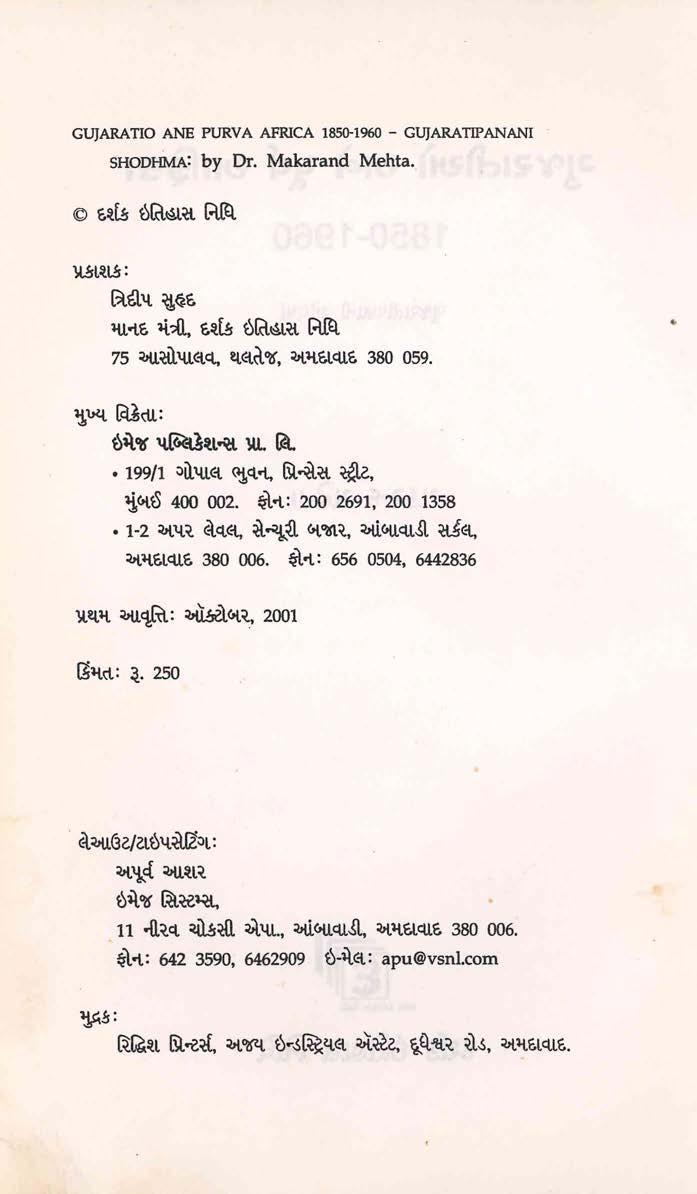 GUJARATIO ANE PURVA AFRICA 1850-1960 – GUJARATIPANANI
SHODHMA: by Dr. Makarand Mehta.
© દર્શક ઇતિહાસ નિધિ
પ્રકાશક:
ત્રિદીપ સુહૃદ
માનદ મંત્રી, દર્શક ઇતિહાસ નિધિ
75 આસોપાલવ, થલતેજ, અમદાવાદ 380 059.
મુખ્ય વિક્રેતા:
ઇમેજ પબ્લિકેશન્સ પ્રા. લિ.
• 199/1 ગોપાલ ભુવન, પ્રિન્સેસ સ્ટ્રીટ,
મુંબઈ 400 002. ફોન: 200 2691, 200 1358
• 1-2 અપર લેવલ, સેન્ચૂરી બજાર, આંબાવાડી સર્કલ,
અમદાવાદ 380 006. ફોન: 656 0504, 6442836
પ્રથમ આવૃત્તિ: ઑક્ટોબર, 2001
કિંમત: રૂ. 250
લેઆઉટ/ટાઇપસેટિંગ:
અપૂર્વ આશર
ઇમેજ સિસ્ટમ્સ,
11 નીરવ ચોકસી એપા., આંબાવાડી, અમદાવાદ 380 006.
ફોન: 642 3590, 6462909 ઇ-મેલ: apu@vsnl.com
મુદ્રક:
રિદ્ધિશ પ્રિન્ટર્સ, અજય ઇન્ડસ્ટ્રિયલ ઍસ્ટેટ, દૂધેશ્વર રોડ, અમદાવાદ.